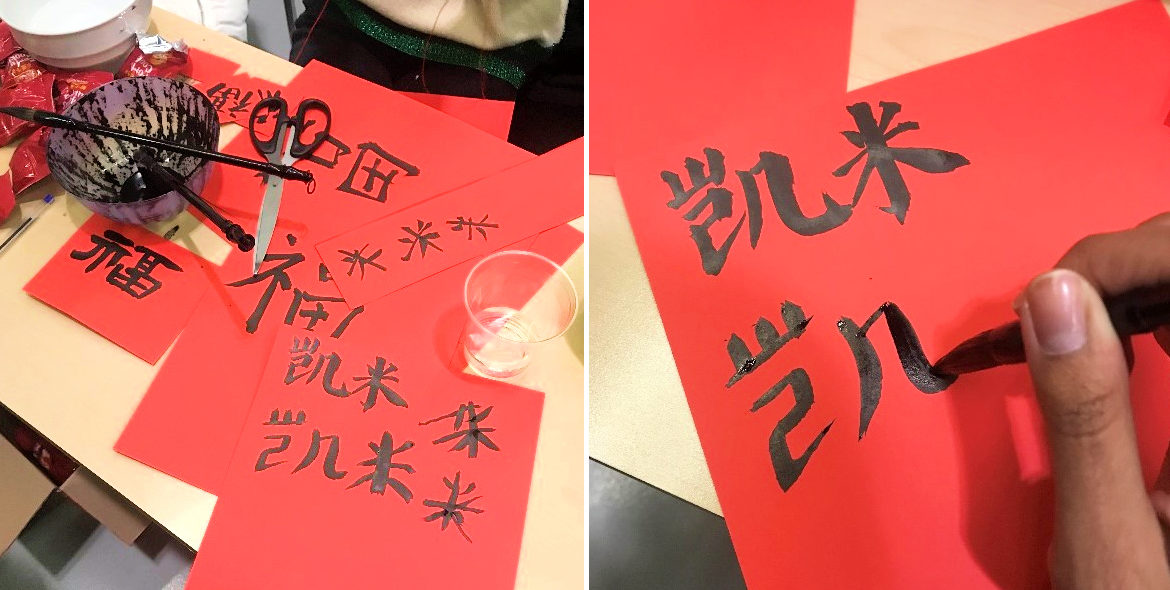 米米米
福
凯米
凯米
米
米
凯米
凯